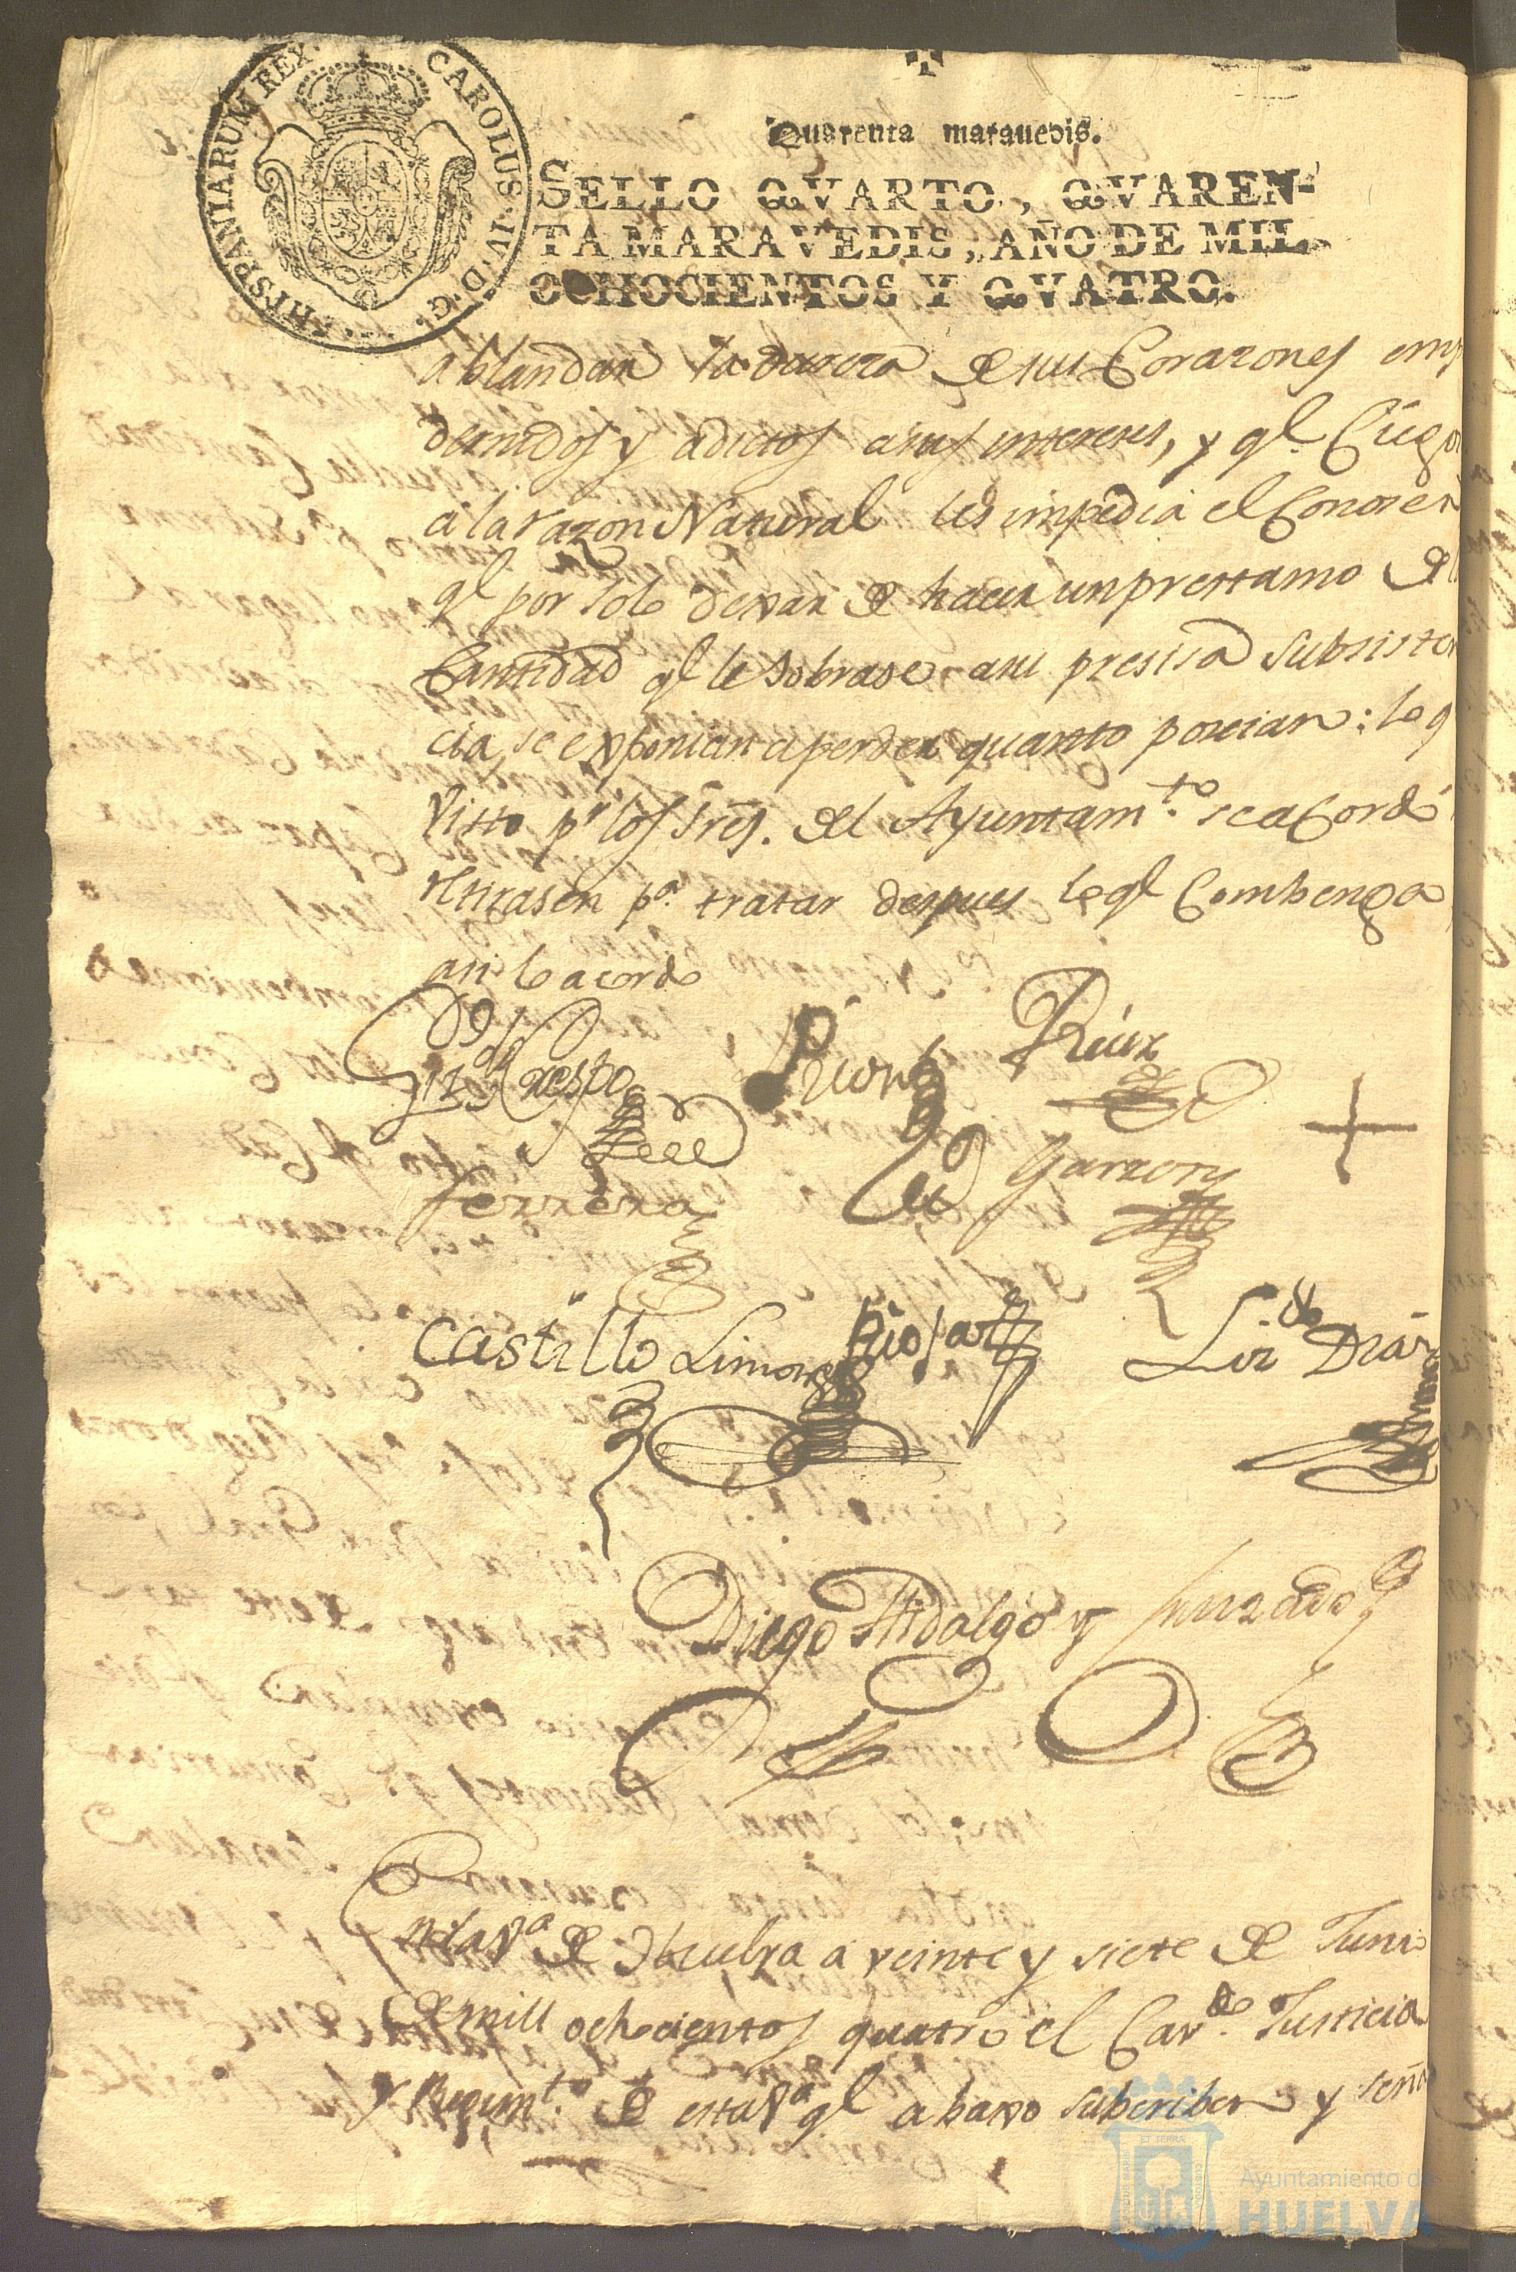 HISPANIARUM REX · CAROLUS · IV · D · G ·
Quarenta maravedis.
SELLO QVARTO, QVAREN-
TA MARAVEDIS, AÑO DE MIL
OCHOCIENTOS Y QVATRO.
ablandar la dureza de sus Corazones emp
dernidos y adictos a sus intereses, y ql. Ciegos
a la razon Natural les impedia el Conoser
ql por solo dexar de hacer un prestamo de l
Cantidad ql le sobrase a su presisa subsisten
cia, se exponian a perder quanto poseian: lo q
Visto pr los Sres. del Ayuntamto. se acordó
retirasen pa. tratar despues lo ql Combenga
asi lo acordó
Crespo
Ruiz
Garzon
Ferrera
Castillo Limon
Liz.do Diaz
Diego Hidalgo y
En la Va de Huelva a veinte y siete de Junio
de mill ochocientos quatro el Cavdo. Justicia
y Regimto. de esta Va ql abaxo subscriben y seña
ET TERRA
Ayuntamiento de
HUELVA